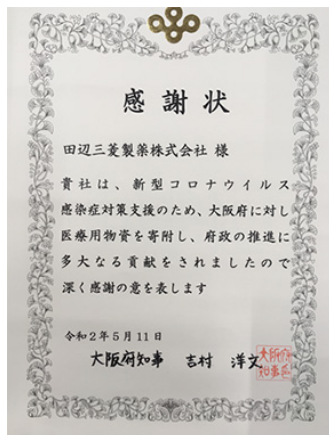 感謝状
田辺三菱製薬株式会社 様
貴社は、新型コロナウイルス
感染症対策支援のため、大阪府に対し
医療用物資を寄附し、府政の推進に
多大なる貢献をされましたので
深く感謝の意を表します
令和2年5月11日
大阪府知事 吉村 洋文
大阪府
知事印